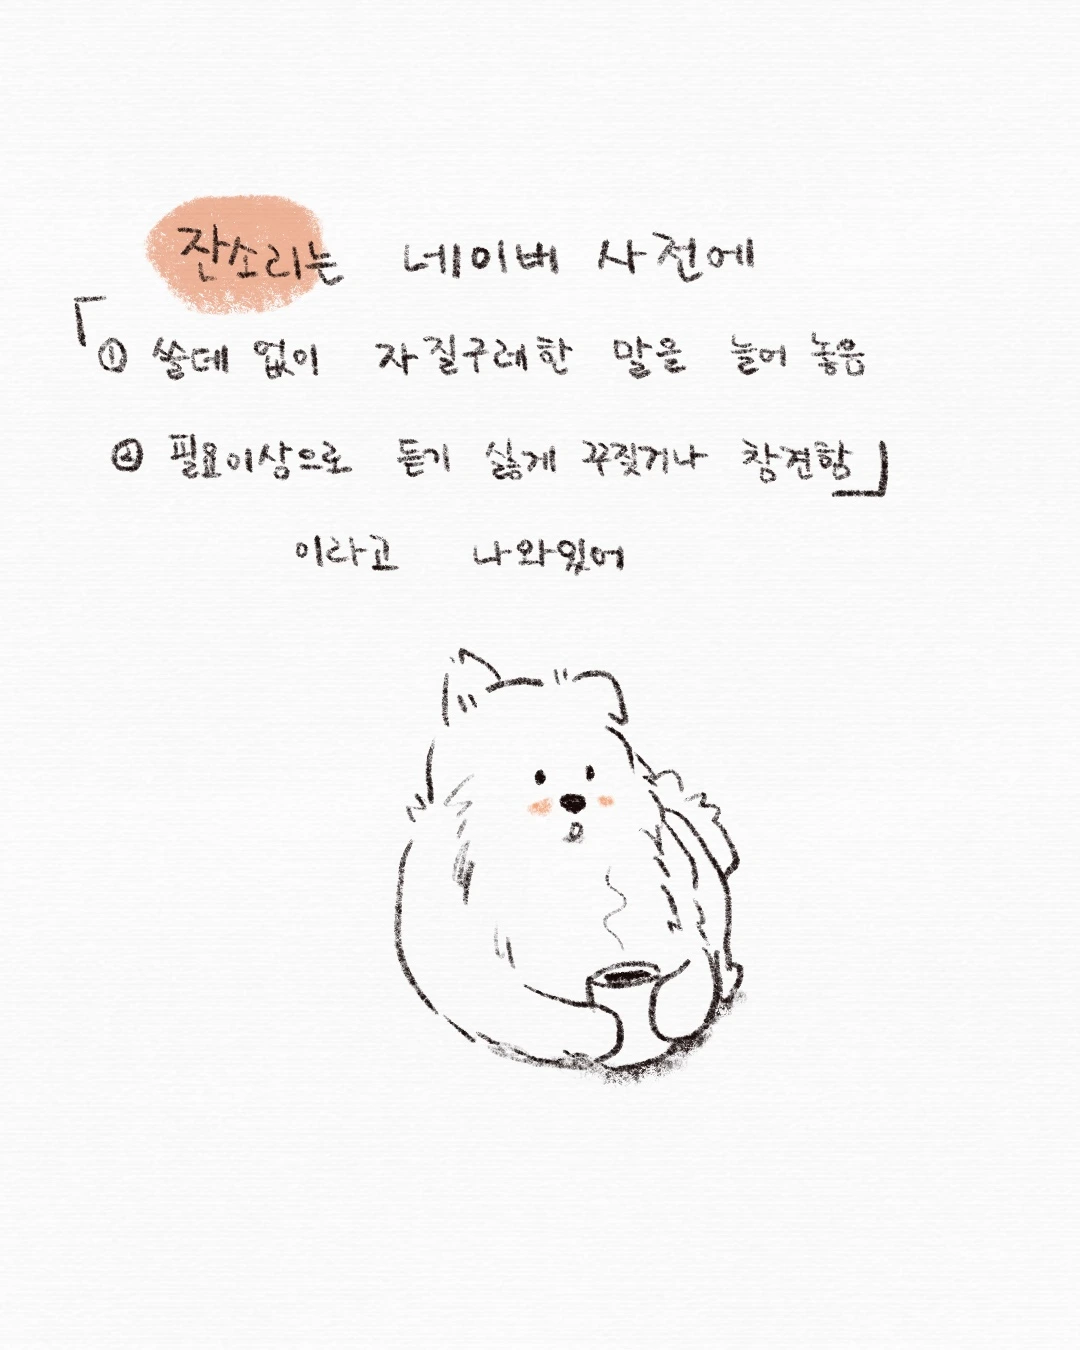 잔소리는 네이버 사전에
「① 쓸데 없이 자질구레한 말을 늘어 놓음
② 필요이상으로 듣기 싫게 꾸짖거나 참견함」
이라고 나와있어